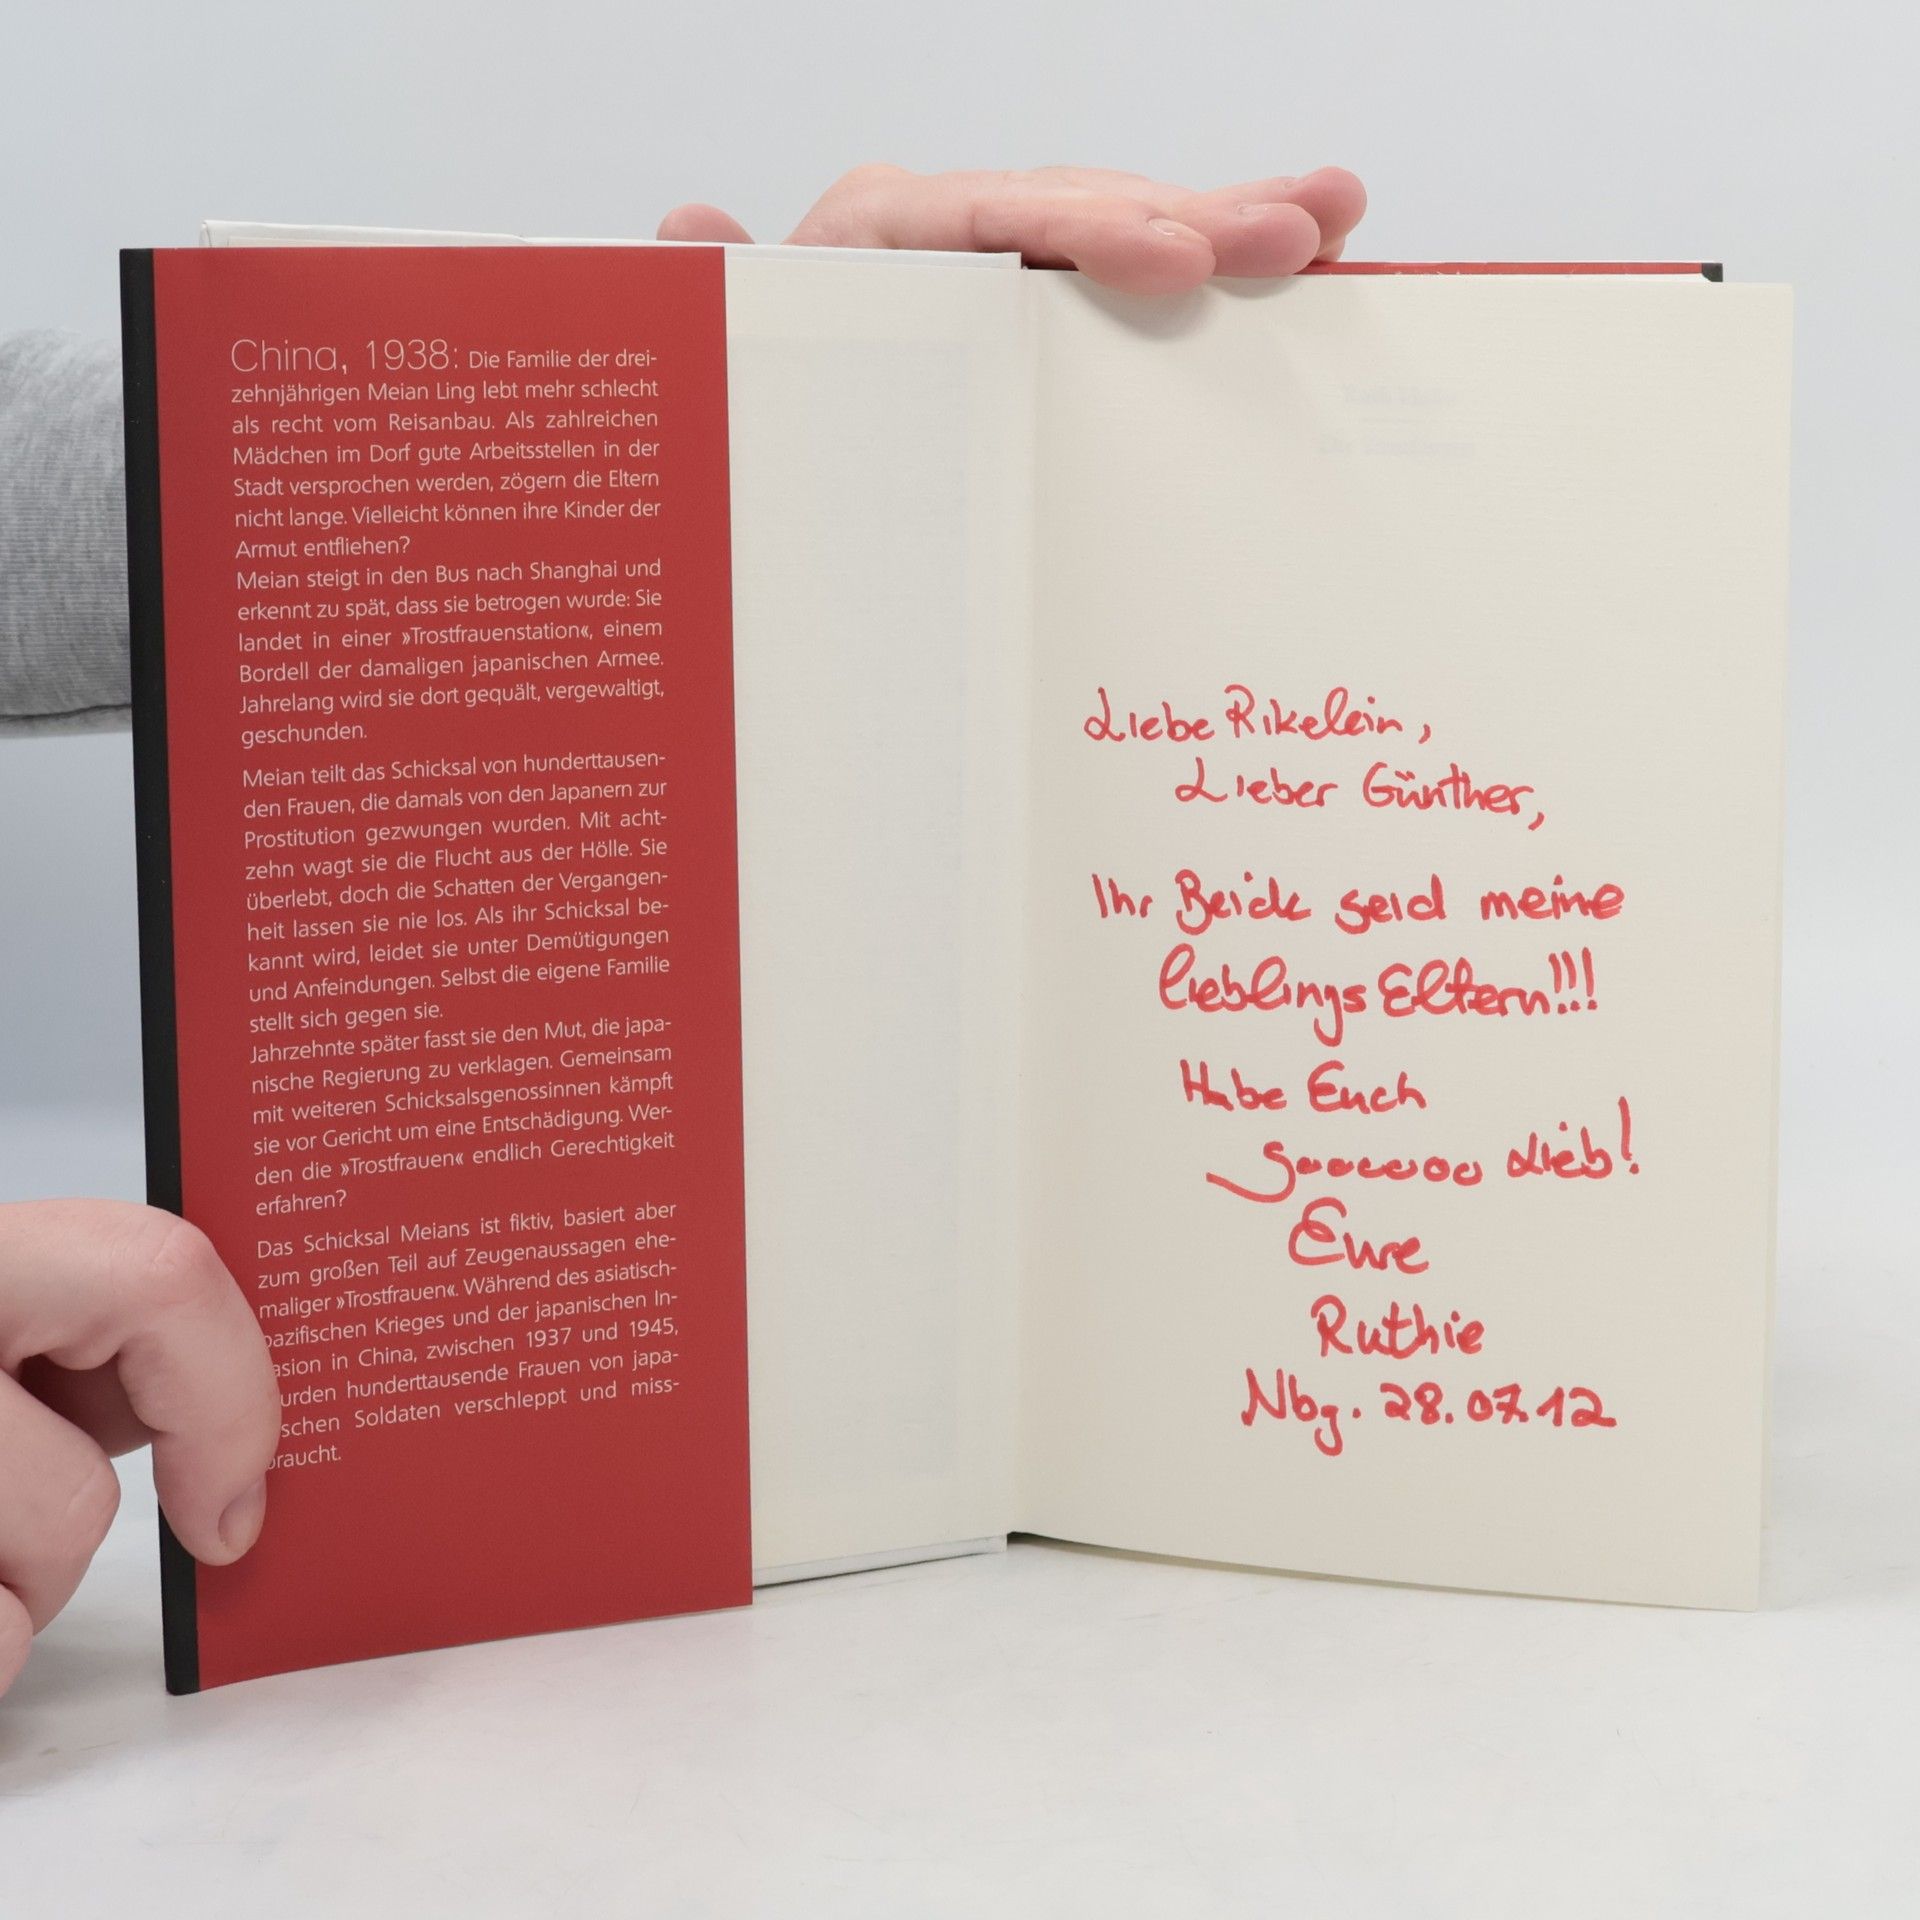 China, 1938: Die Familie der drei-
zehnjährigen Meian Ling lebt mehr schlecht
als recht vom Reisanbau. Als zahlreichen
Mädchen im Dorf gute Arbeitsstellen in der
Stadt versprochen werden, zögern die Eltern
nicht lange. Vielleicht können ihre Kinder der
Armut entfliehen?
Meian steigt in den Bus nach Shanghai und
erkennt zu spät, dass sie betrogen wurde: Sie
landet in einer »Trostfrauenstation«, einem
Bordell der damaligen japanischen Armee.
Jahrelang wird sie dort gequält, vergewaltigt,
geschunden.
Meian teilt das Schicksal von hunderttausen-
den Frauen, die damals von den Japanern zur
Prostitution gezwungen wurden. Mit acht-
zehn wagt sie die Flucht aus der Hölle. Sie
überlebt, doch die Schatten der Vergangen-
heit lassen sie nie los. Als ihr Schicksal be-
kannt wird, leidet sie unter Demütigungen
und Anfeindungen. Selbst die eigene Familie
stellt sich gegen sie.
Jahrzehnte später fasst sie den Mut, die japa-
nische Regierung zu verklagen. Gemeinsam
mit weiteren Schicksalsgenossinnen kämpft
sie vor Gericht um eine Entschädigung. Wer-
den die »Trostfrauen« endlich Gerechtigkeit
erfahren?
Das Schicksal Meians ist fiktiv, basiert aber
zum großen Teil auf Zeugenaussagen ehe-
maliger »Trostfrauen«. Während des asiatisch-
pazifischen Krieges und der japanischen In-
asion in China, zwischen 1937 und 1945,
urden hunderttausende Frauen von japa-
schen Soldaten verschleppt und miss-
braucht.
Liebe Rikelein,
Lieber Günther,
Ihr Beide seid meine
lieblings Eltern!!!
Habe Euch
sooooooo Lieb!
Eure
Ruthie
Nbg. 28.07.12